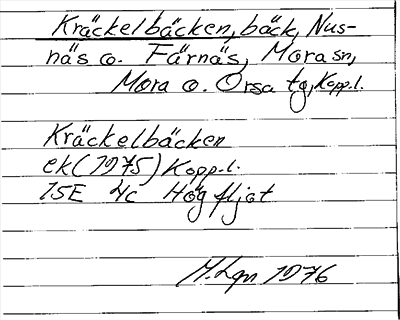 Kräckelbäcken, bäck, Nus-
näs o. Färnäs, Mora sn,
Mora o. Orsa tg, Kopp.l.
Kräckelbäcken
ek (1975) Kopp.l.
15E 4c Högfljot
M.Lgn 1976